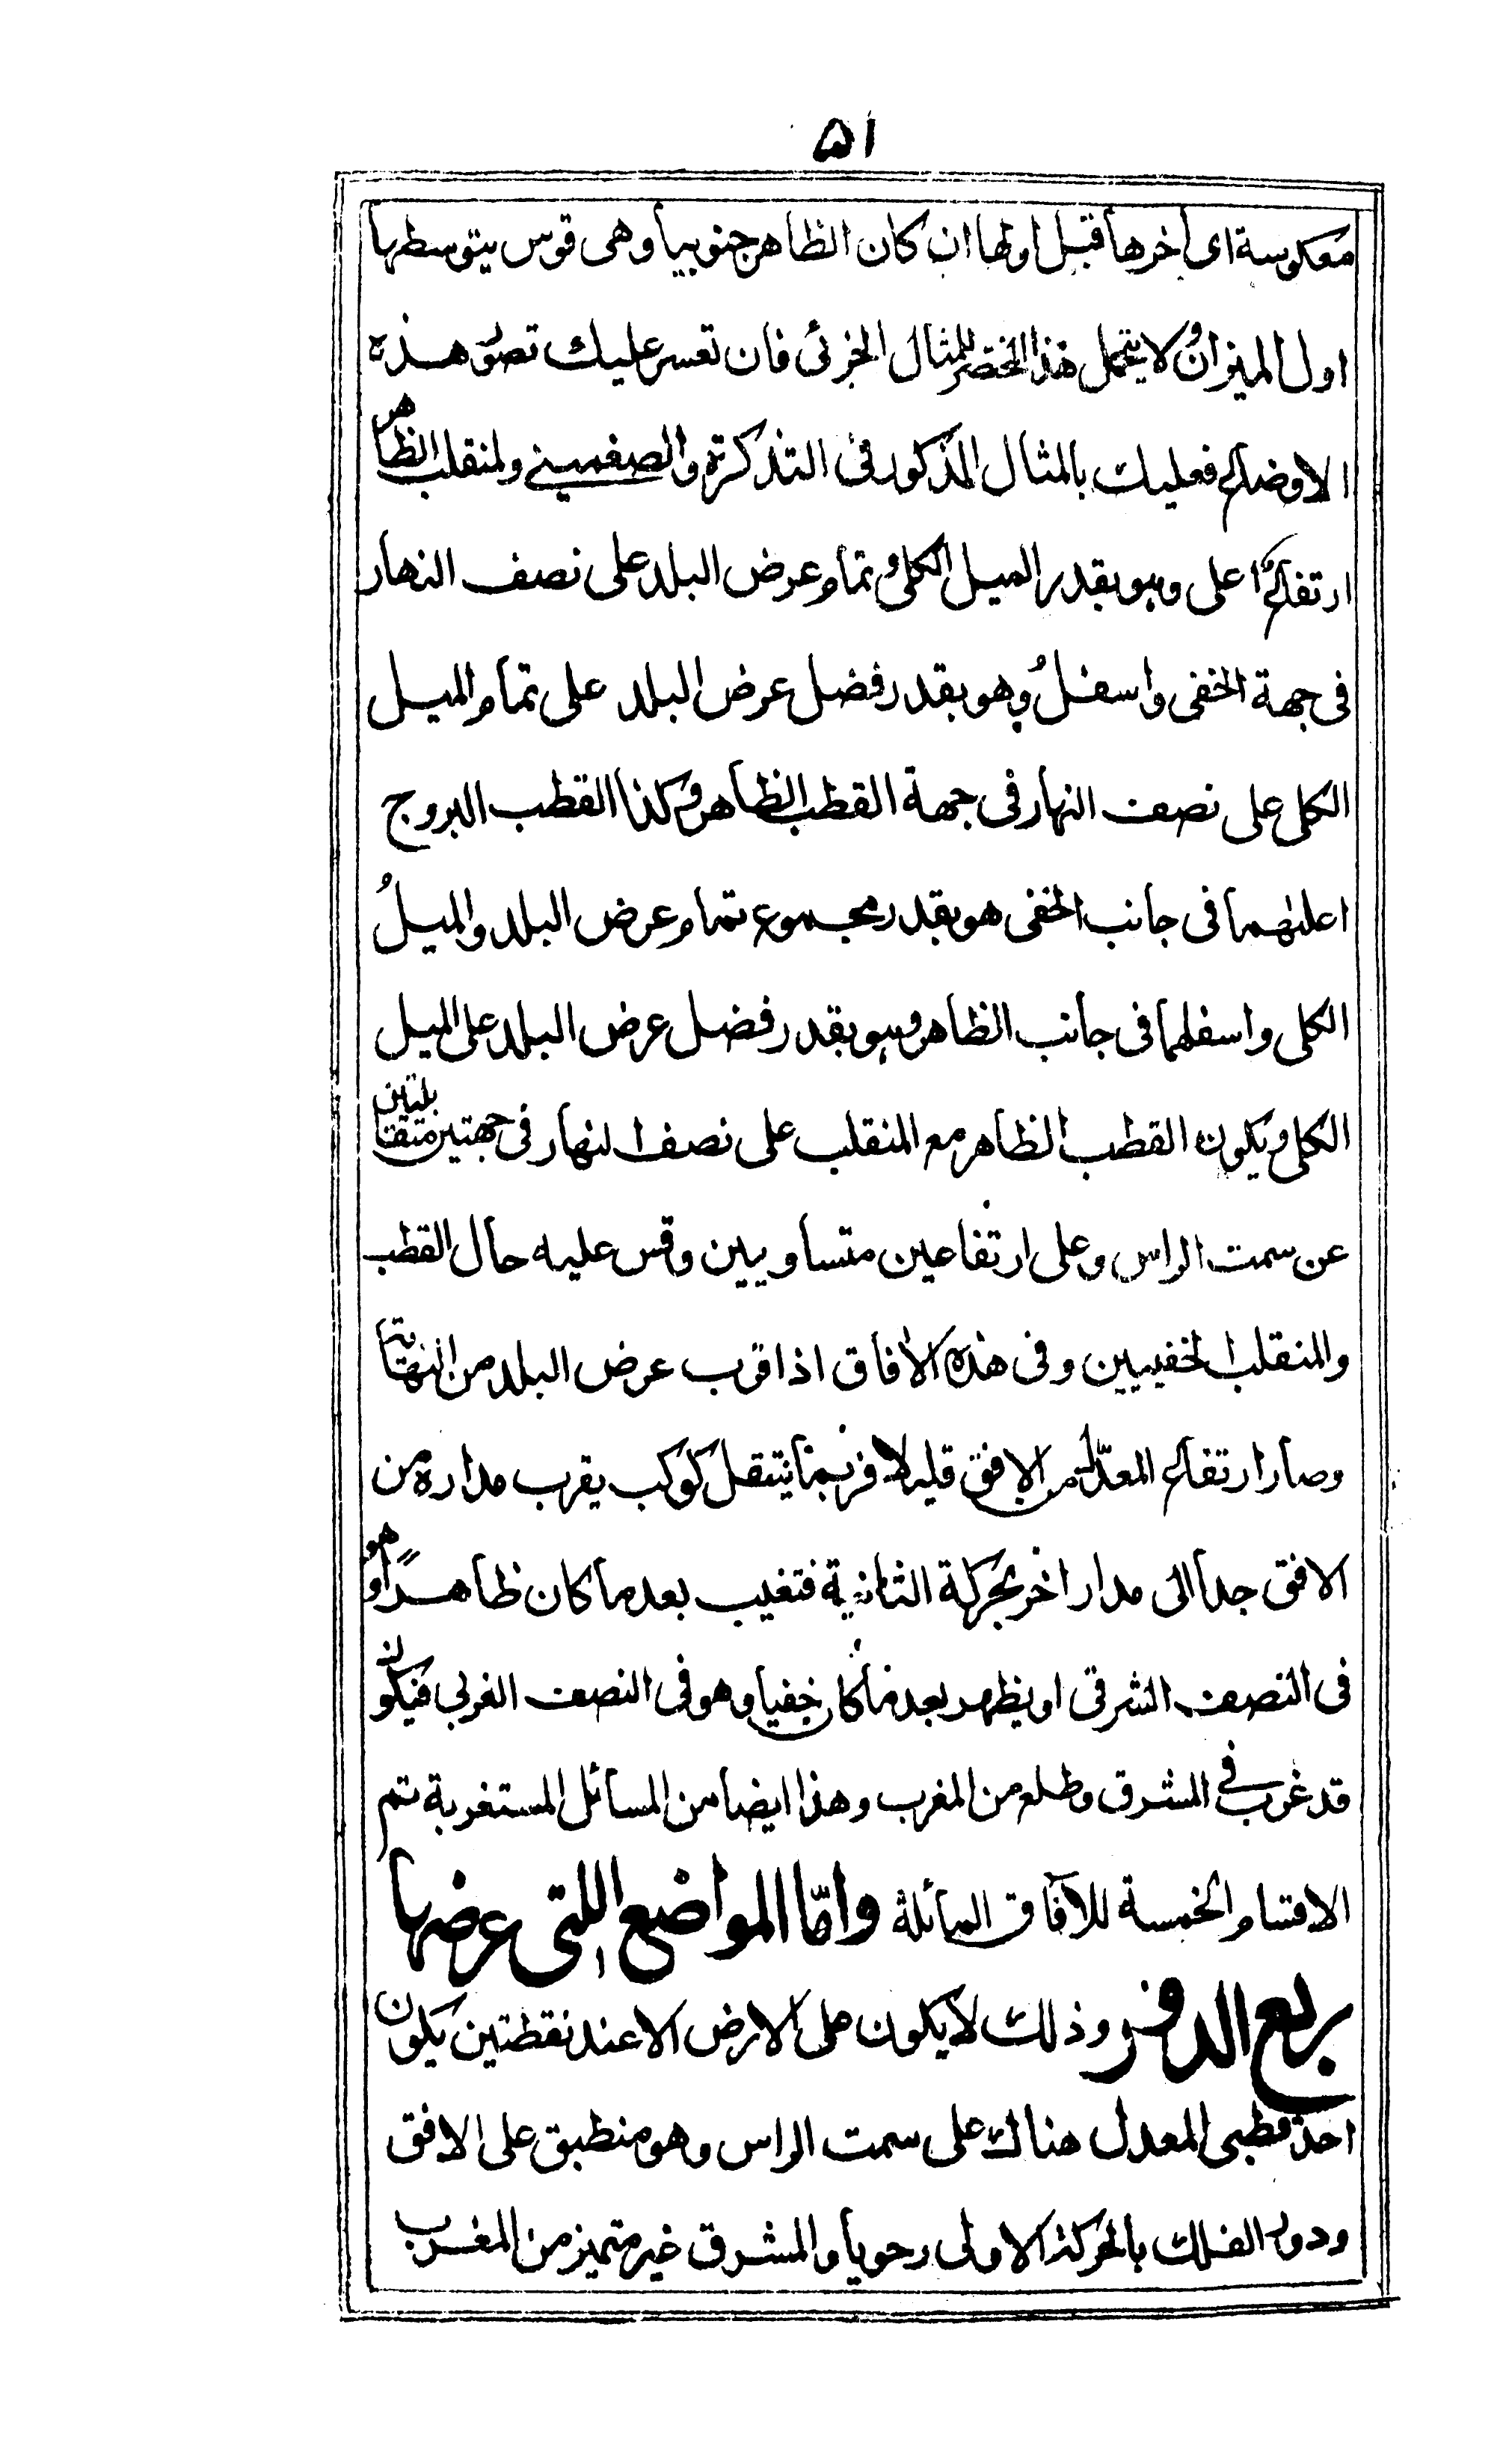 ۵۱
معكوسة اى اخرها قبل اولها ان كان الظاهر جنوبيا وهى قوس يتوسطها
اول الميزان ولا يتحمل هذا المختصر للمثال الجزئى فان تعسر عليك تصور هذه
الاوضاع فعليك بالمثال المذكور فى التذكرة والصغمينے ولمنقلب الظاهر
ارتفاع اعلى وهو بقدر الميل الكلى و تمام عرض البلد على نصف النهار
فى جهة الخفى واسفل وهو بقدر فضل عرض البلد على تمام الميل
الكلى على نصف النهار فى جهة القطب الظاهر وكذا القطب البروج
اعلٰهما فى جانب الخفى هو بقدر مجموع تمام عرض البلد والميل
الكلى واسفلهما فى جانب الظاهر وهو بقدر فضل عرض البلد على الميل
الكلى ويكون القطب الظاهر مع المنقلب على نصف النهار فى جهتين متقابلتين
عن سمت الراس وعلى ارتفاعين متساويين وقس عليه حال القطب
والمنقلب الخفيين وفى هذه الافاق اذا قرب عرض البلد من النهاية
وصار ارتفاع المعدّل من الافق قليلا فربما ينتقل كوكب يقرب مداره من
الافق جدا الى مدار اخر بحركة الثانية فتغيب بعد ما كان ظاهرًا وهو
فى النصف الشرقى او يظهر بعد ما كان خفيا وهو فى النصف الغربى فيكون
قد غرب فى المشرق وطلع من المغرب وهذا ايضا من المسائل المستغربة تم
الاقسام الخمسة للآفاق المائلة وامّا المواضع اللتى عرضها
ربع الدور وذلك لا يكون على الارض الا عند نقطتين يكون
احد قطبى المعدل هناك على سمت الراس وهو منطبق على الافق
ودور الفلك بالحركة الاولى رحويا والمشرق غير متميز من المغرب